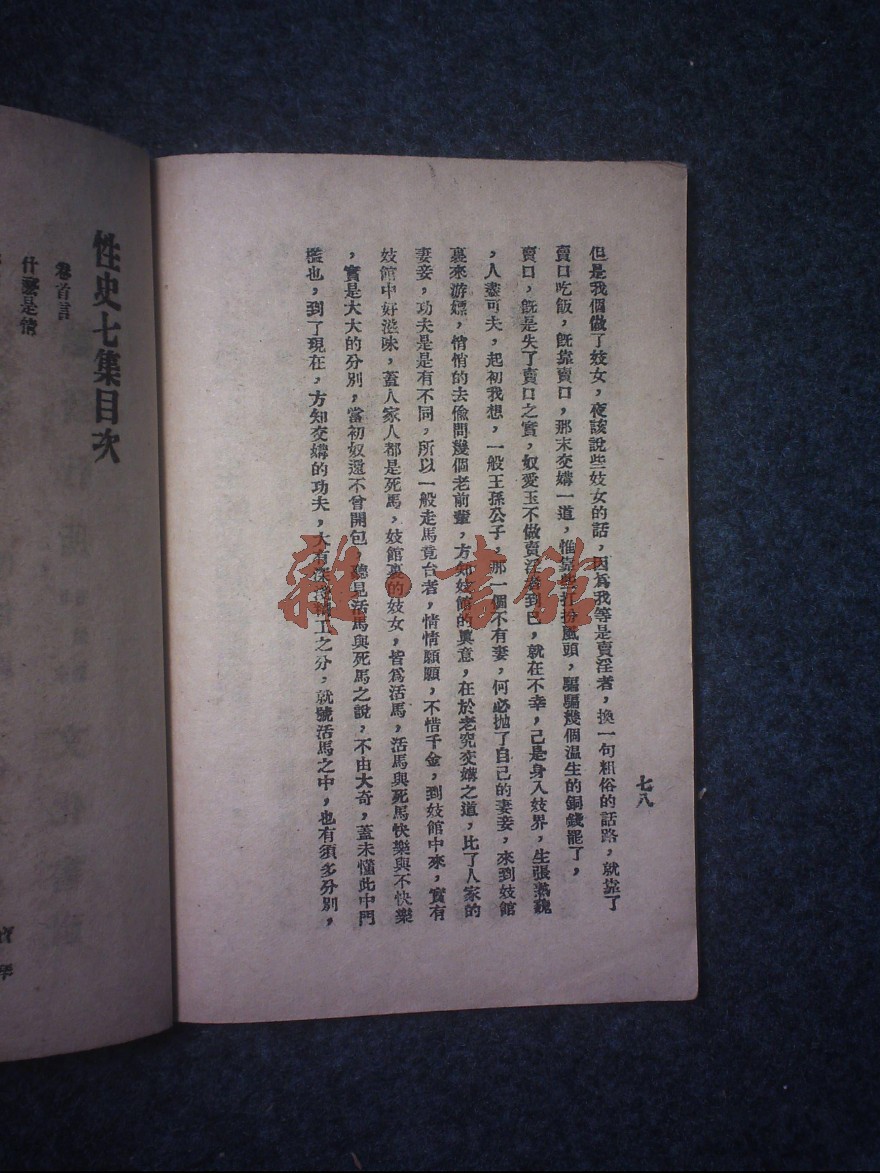 七八
但是我個做了妓女，夜該說些妓女的話，因爲我等是賣淫者，換一句粗俗的話路，就靠了
賣口吃飯，旣靠賣口，那末交媾一道，惟靠些打扮風頭，騙騙幾個溫生的銅錢罷了，
賣口，旣是失了賣口之實，奴愛玉不做賣淫者到已，就在不幸，己是身入妓界，生張熟魏
，人盡可夫，起初我想，一般王孫公子，那一個不有妻，何必拋了自己的妻妾，來到妓館
裏來游嫖，悄悄的去偸問幾個老前輩，方知妓館的興意，在於老究交媾之道，比了人家的
妻妾，功夫是是有不同，所以一般走馬竟台者，情情願願，不惜千金，到妓館中來，實有
妓館中好滋味，蓋人家人都是死馬，妓館裏的妓女，皆爲活馬，活馬與死馬快樂與不快樂
，實是大大的分別，當初奴還不曾開包，聽見活馬與死馬之說，不由大奇，蓋未懂此中門
檻也，到了現在，方知交媾的功夫，大有之分，就號活馬之中，也有須多分別，
性史七集目次
卷首言
什麼是情
雜·書館